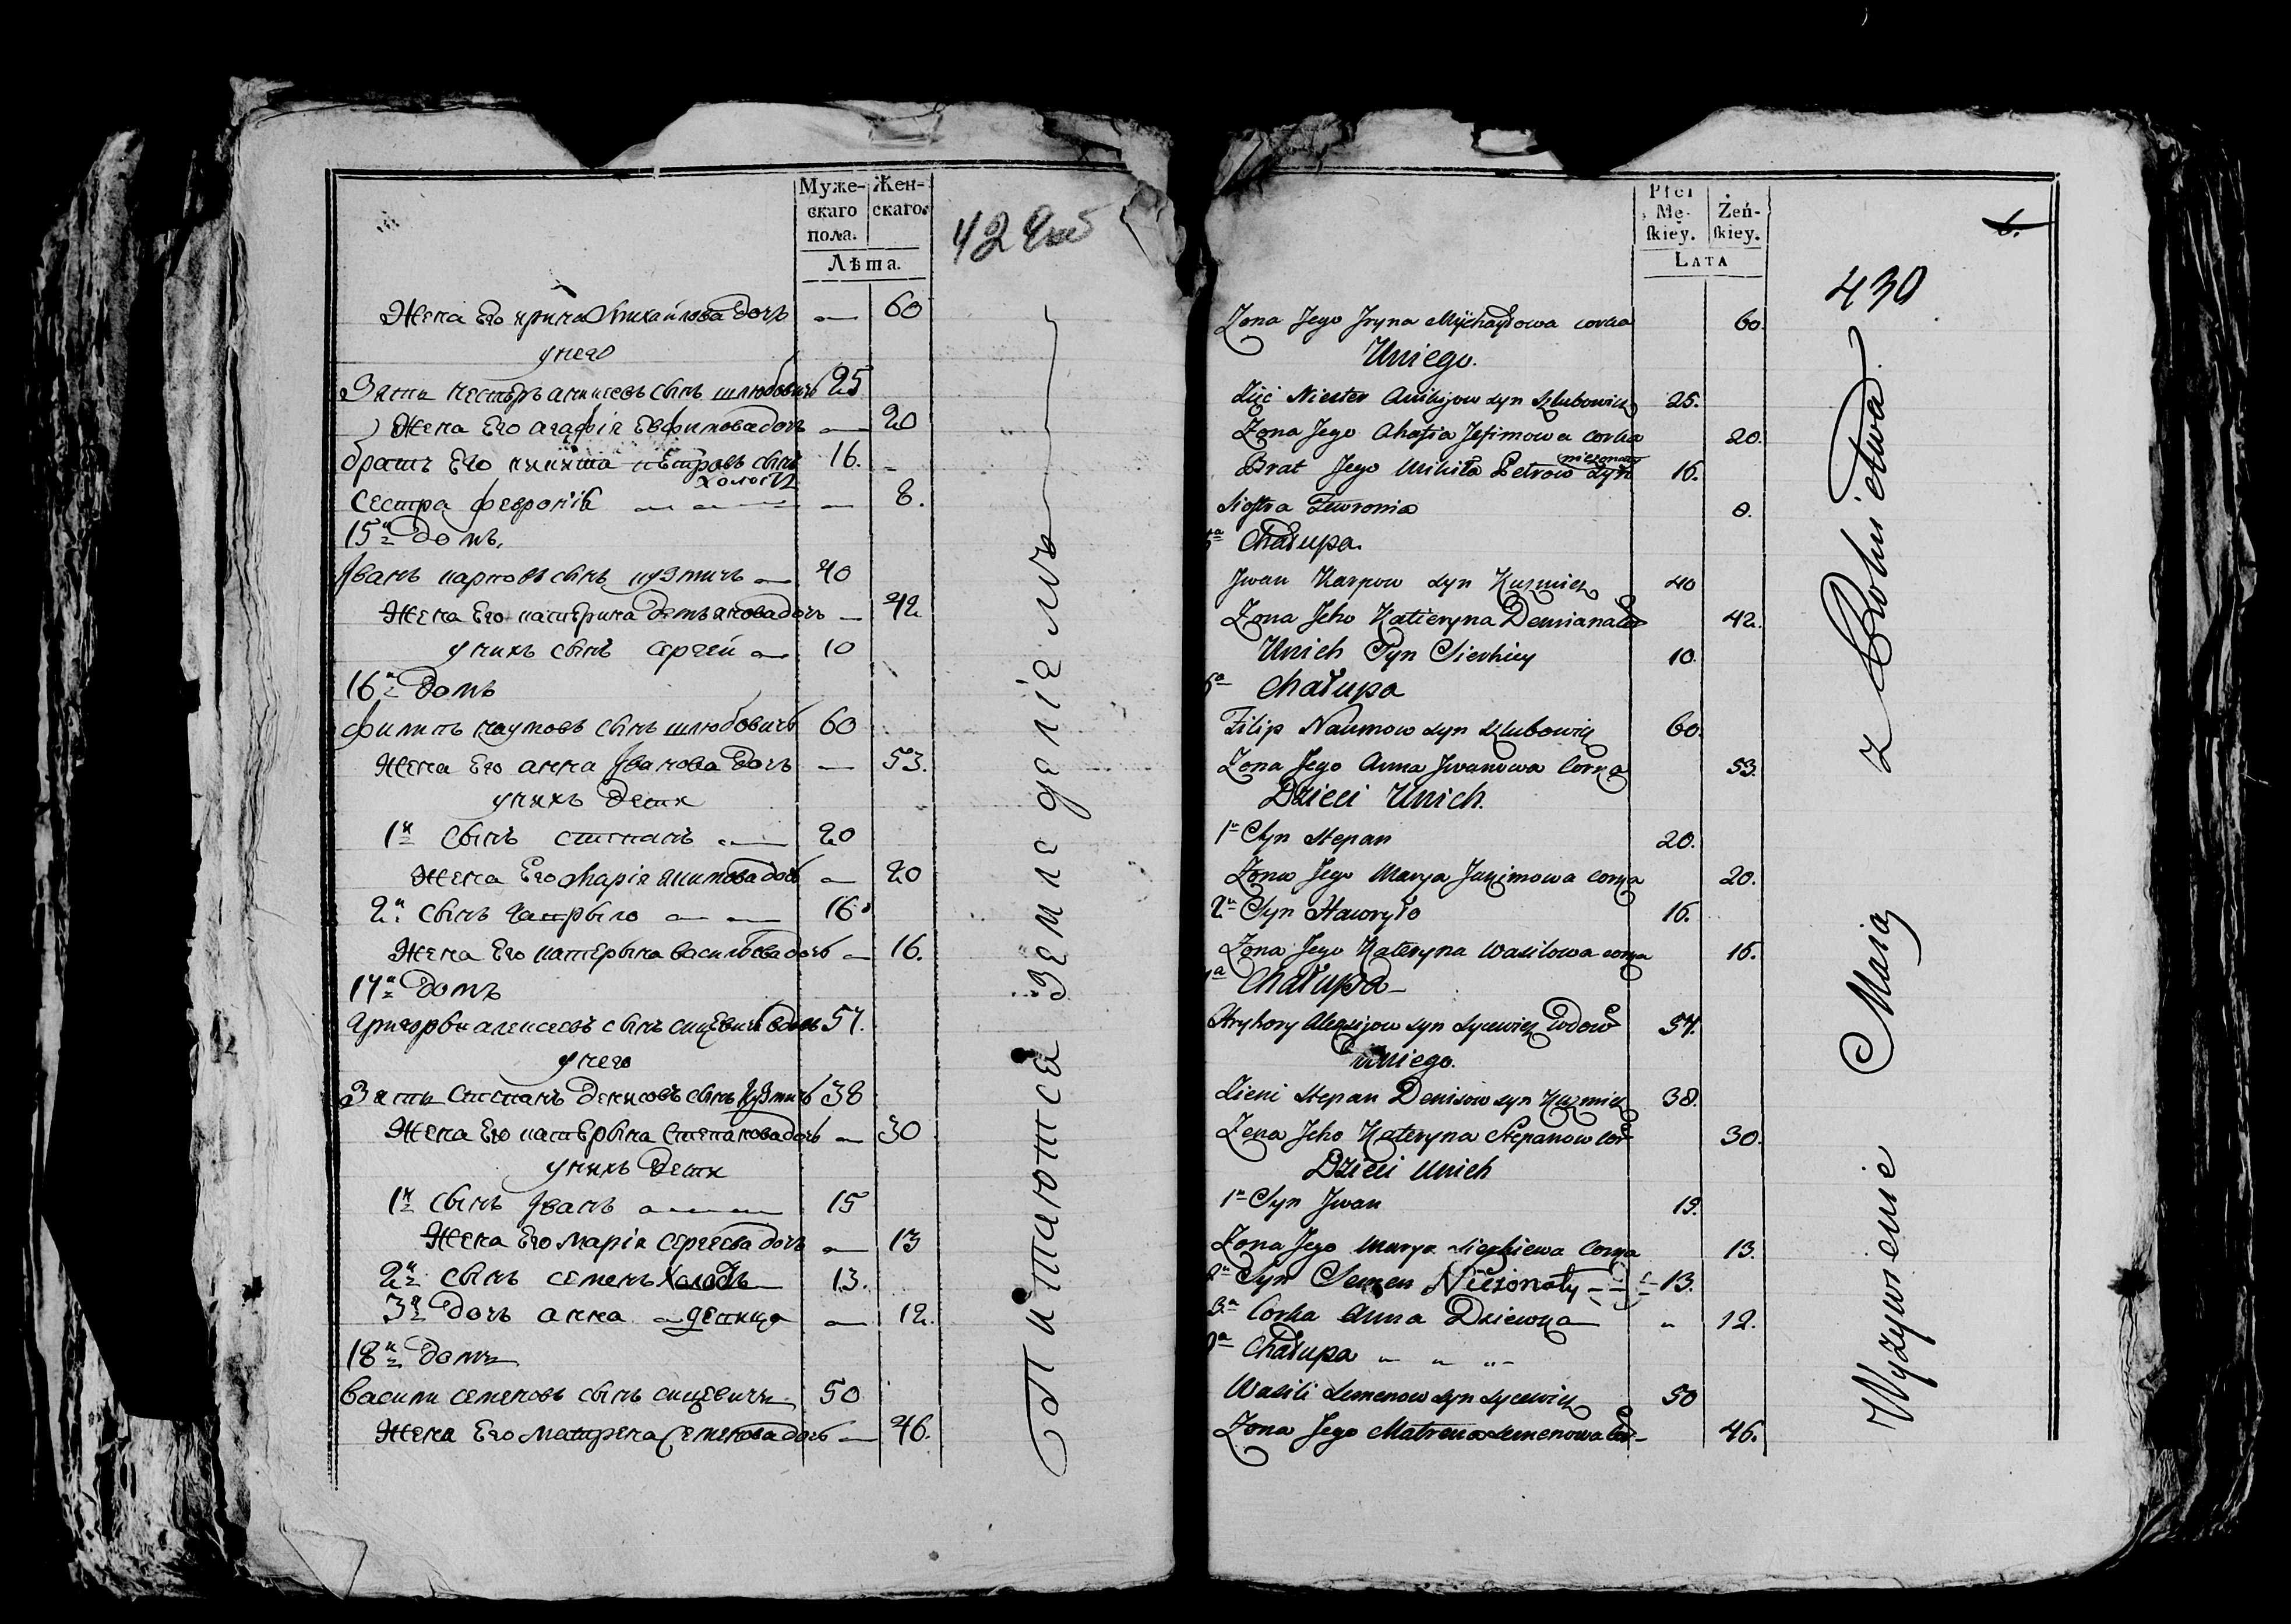 Муже-
скаго
пола.
Жен-
скаго.
Лѣта.
Жена Его ирина Михайлова дочь — 60
унего
Зять нестѣръ анисевъ сынъ шлюбовичъ 25
Жена Его агафія Евфимова дочь — 20
братъ Его никита пѣтровъ сынъ 16.
холостъ
сестра февронія — 8.
15й домъ.
Иванъ карповъ сынъ кузмичъ — 40
Жена Его катерина демъянова дочь — 42
унихъ сынъ сергей — 10
16й домъ
филипъ наумовъ сынъ шлюбовичъ 60
Жена Его анна Иванова дочь — 53.
унихъ дети
1й сынъ степанъ — 20
Жена Его Марія якимова дочь — 20
2й сынъ гаврыло — 16
Жена Его катерына васильева дочь — 16.
17й домъ
григорьи алексеевъ сынъ сицевичъ вдовъ 57.
унего
Зять степанъ денисовъ сынъ кузмичъ 38
Жена Его катерына степанова дочь — 30
унихъ дети
1й сынъ Иванъ — 15
Жена Его марія сергеева дочь — 13
2й сынъ семенъ холостъ 13.
3я дочь анна — девица — 12.
18й домъ
василии семеновъ сынъ сицевичъ 50
Жена Его матрена семенова дочь — 46.
питаются земледеліемъ
Płci
Mę-
skiey.
Żeń-
skiey.
LATA
6.
430
Zona Jego Jryna Mychayłowa corka 60.
Uniego.
Zięć Niester Anikijow syn Szlubowicz 25.
Zona Jego Ahafia Jefimowa corka 20.
Brat Jego Mikita Petrow syn 16.
nieżonaty
Siostra Fewronia 8.
5a Chałupa.
Jwan Karpow syn Kuzmicz 40
Zona Jeho Katieryna Demiana cor 42.
Unich Syn Sierhiey 10.
6a Chałupa
Filip Naumow syn Szlubowicz 60.
Zona Jego Anna Jwanowa Corka 53.
Dzieci Unich.
1n Syn Stepan 20.
Zona Jego Marya Jakimowa corka 20.
2n Syn Hawryło 16.
Zona Jego Kateryna Wasilowa corka 16.
7a Chałupa —
Hryhory Alexijow syn Sycewicz Wdow 57.
uniego.
Zieni Stepan Denisow syn Kuzmicz 38.
Zena Jeho Kateryna Stepanow cor 30.
Dzieci Unich
1n Syn Jwan 15.
Zona Jego Marya Sierhiewa Corka 13.
2n Syn Semen Nieżonaty — 13.
3a Corka Anna Dziewka " 12.
8a Chałupa " " "
Wasili Semenow syn Sycewicz 50
Zona Jego Matrena Semenowa Cor — 46.
Wyżywienie Maią z Rolnictwa